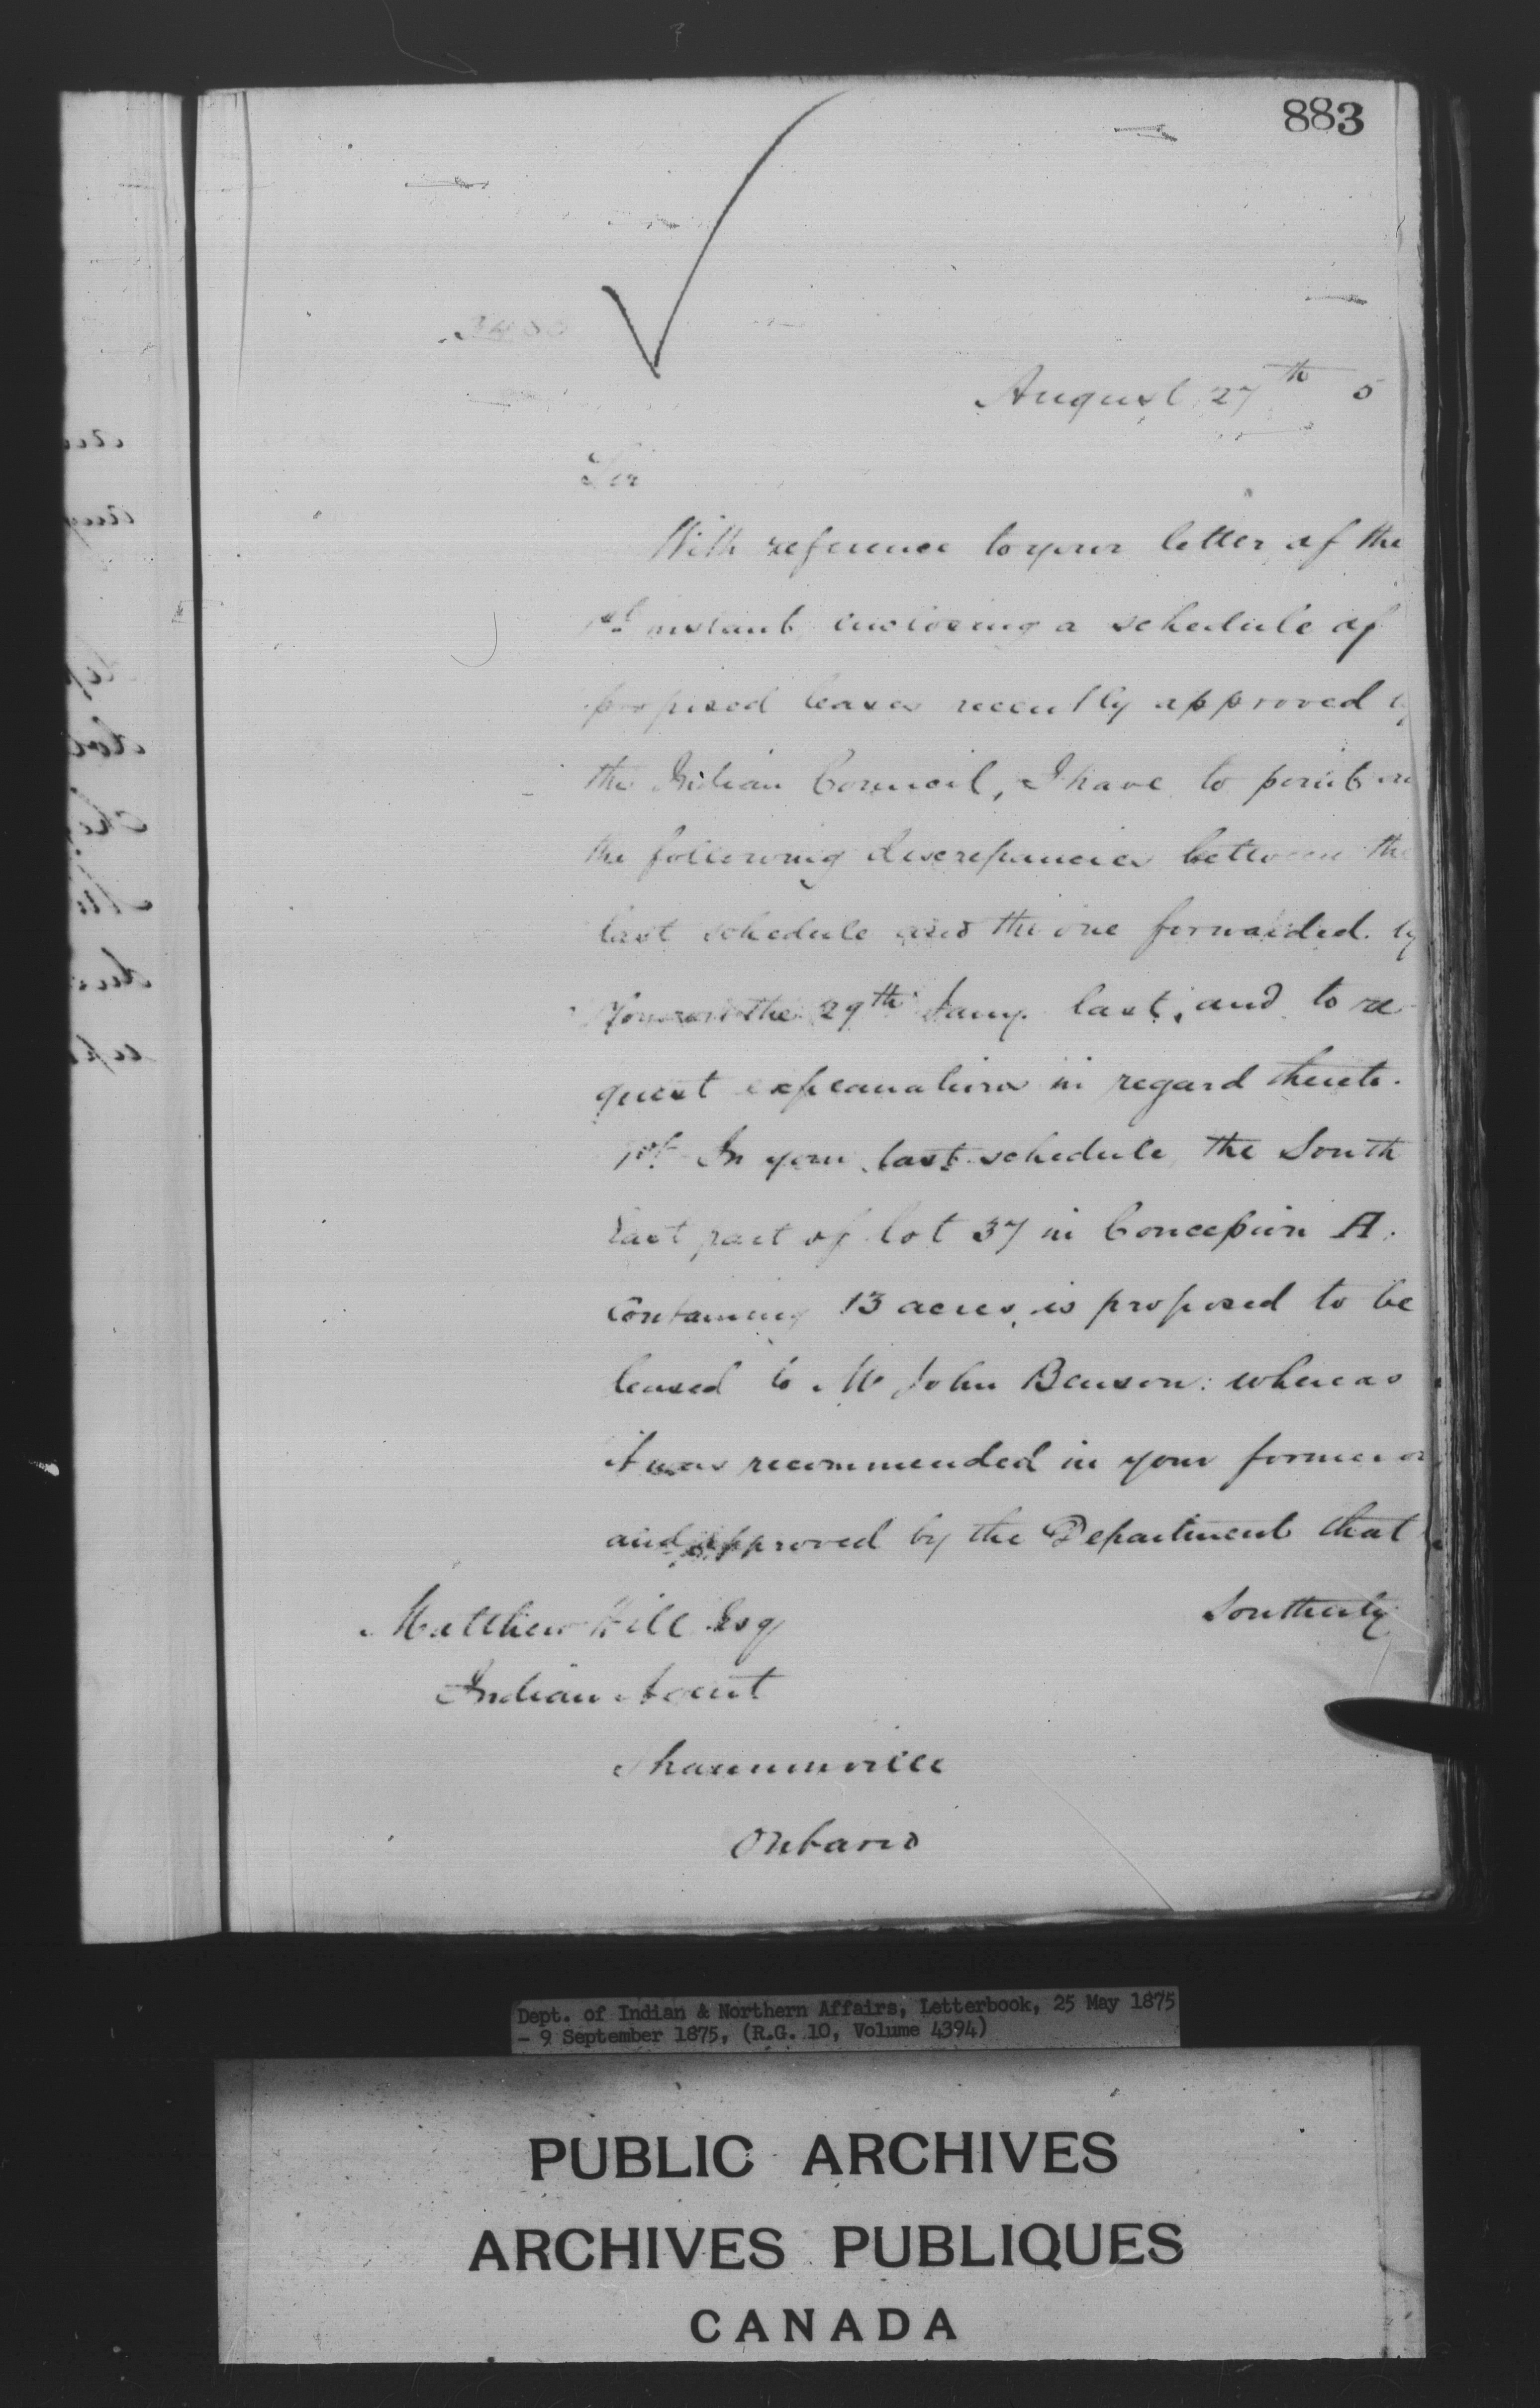 883
August 27th 5
Sir
With reference to your letter of the
1st instant enclosing a schedule of
proposed leases recently approved by
the Indian Council, I have to point out
the following discrepancies between the
last schedule and the one forwarded by
You on the 29th Jany. last, and to re
quest explanation in regard thereto.
1st In your last schedule the South
East part of lot 37 in Concession A.
Containing 13 acres, is proposed to be
leased to Mr John Benson: whereas
it was recommended in your former
and approved by the Department that
Southerly
Matthew Hill Esq
Indian Agent
Shannonville
Ontario
Dept. of Indian & Northern Affairs, Letterbook, 25 May 1875
- 9 September 1875, (R.G. 10, Volume 4394)
PUBLIC ARCHIVES
ARCHIVES PUBLIQUES
CANADA